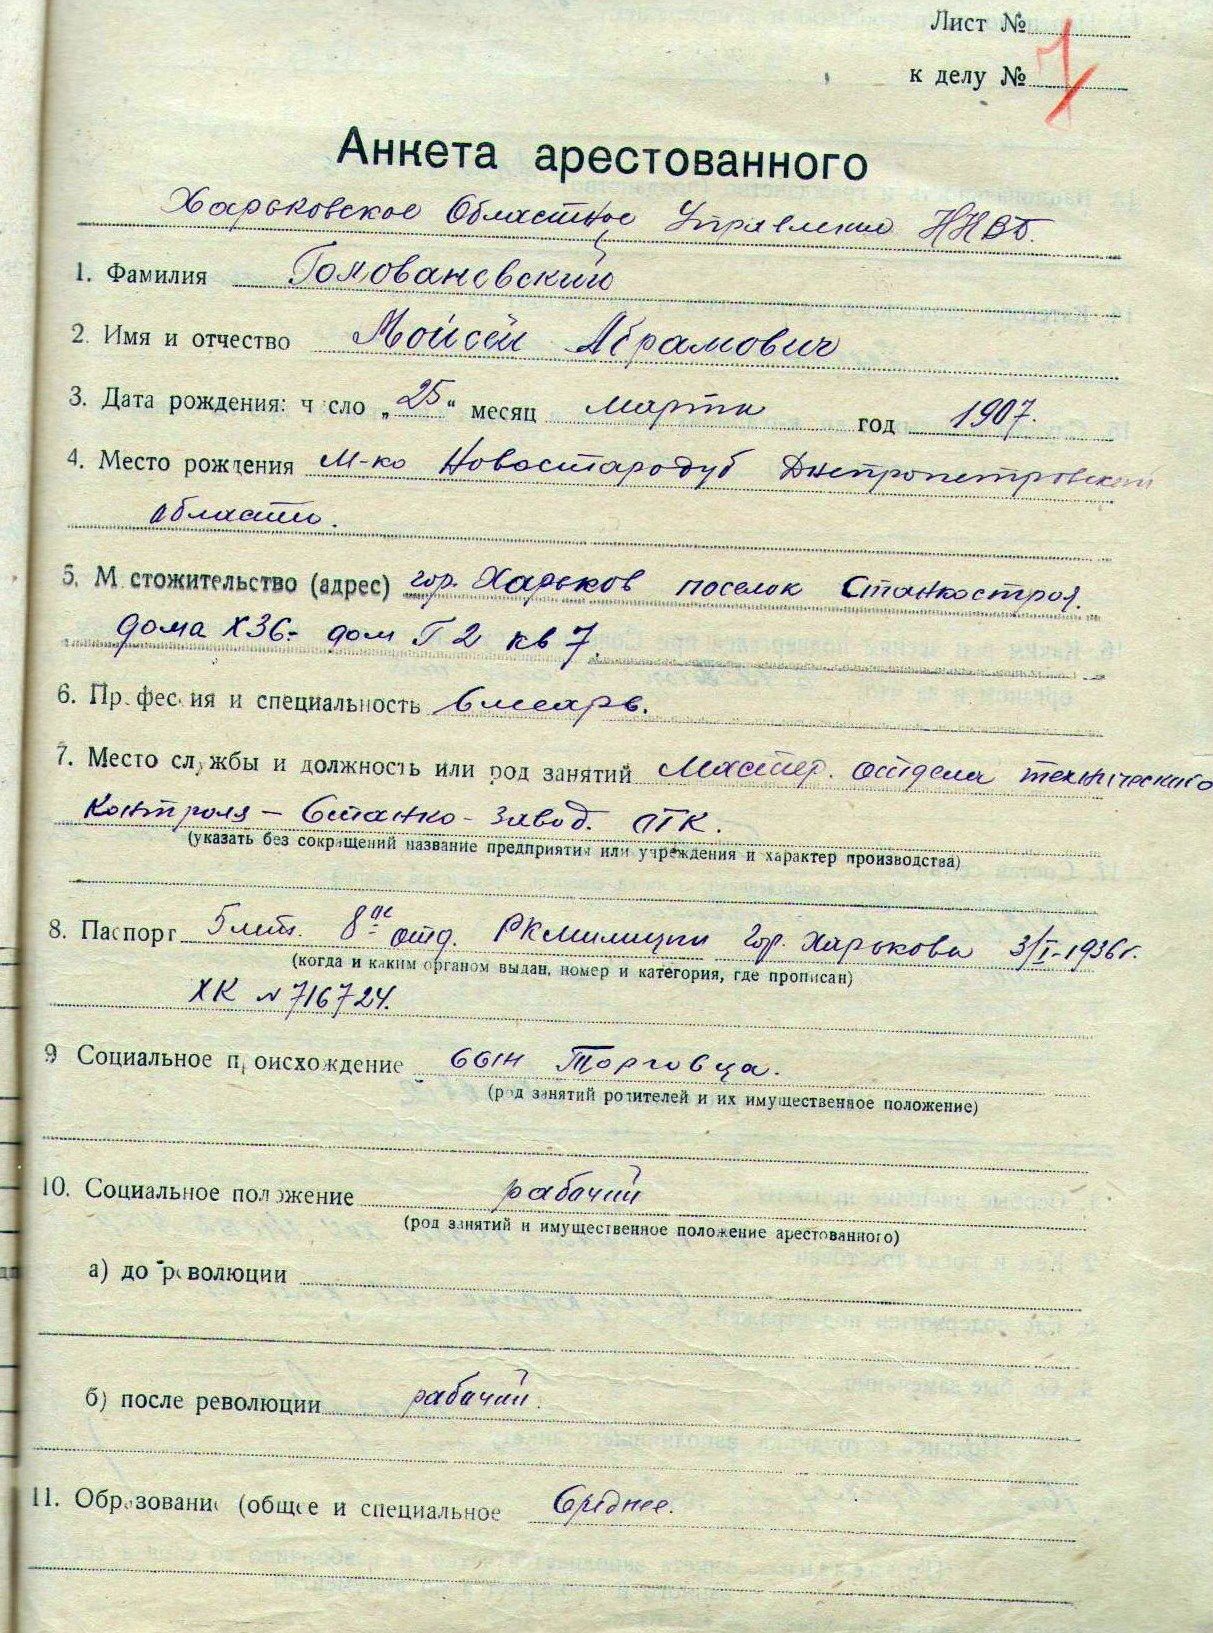 Лист №
к делу №
7
Анкета арестованного
Харьковское Областное Управление НКВД.
1. Фамилия Головановский
2. Имя и отчество Мойсей Абрамович
3. Дата рождения: число „25“ месяц марта год 1907.
4. Место рождения м-ко Новостародуб Днепропетровской
области.
5. Местожительство (адрес) гор. Харьков поселок Станкостроя.
дома ХЗ6- дом Г 2 кв 7.
6. Профессия и специальность Слесарь.
7. Место службы и должность или род занятий Мастер. отдела технического
контроля – Станко-завод. ОТК.
(указать без сокращений название предприятия или учреждения и характер производства)
8. Паспорт 5 лет. 8ое отд. РКмилиции гор. Харькова 3/I-1936г.
(когда и каким органом выдан, номер и категория, где прописан)
ХК № 716724.
9 Социальное происхождение сын Торговца.
(род занятий родителей и их имущественное положение)
10. Социальное положение рабочий
(род занятий и имущественное положение арестованного)
а) до революции
б) после революции рабочий.
11. Образование (общее и специальное Среднее.